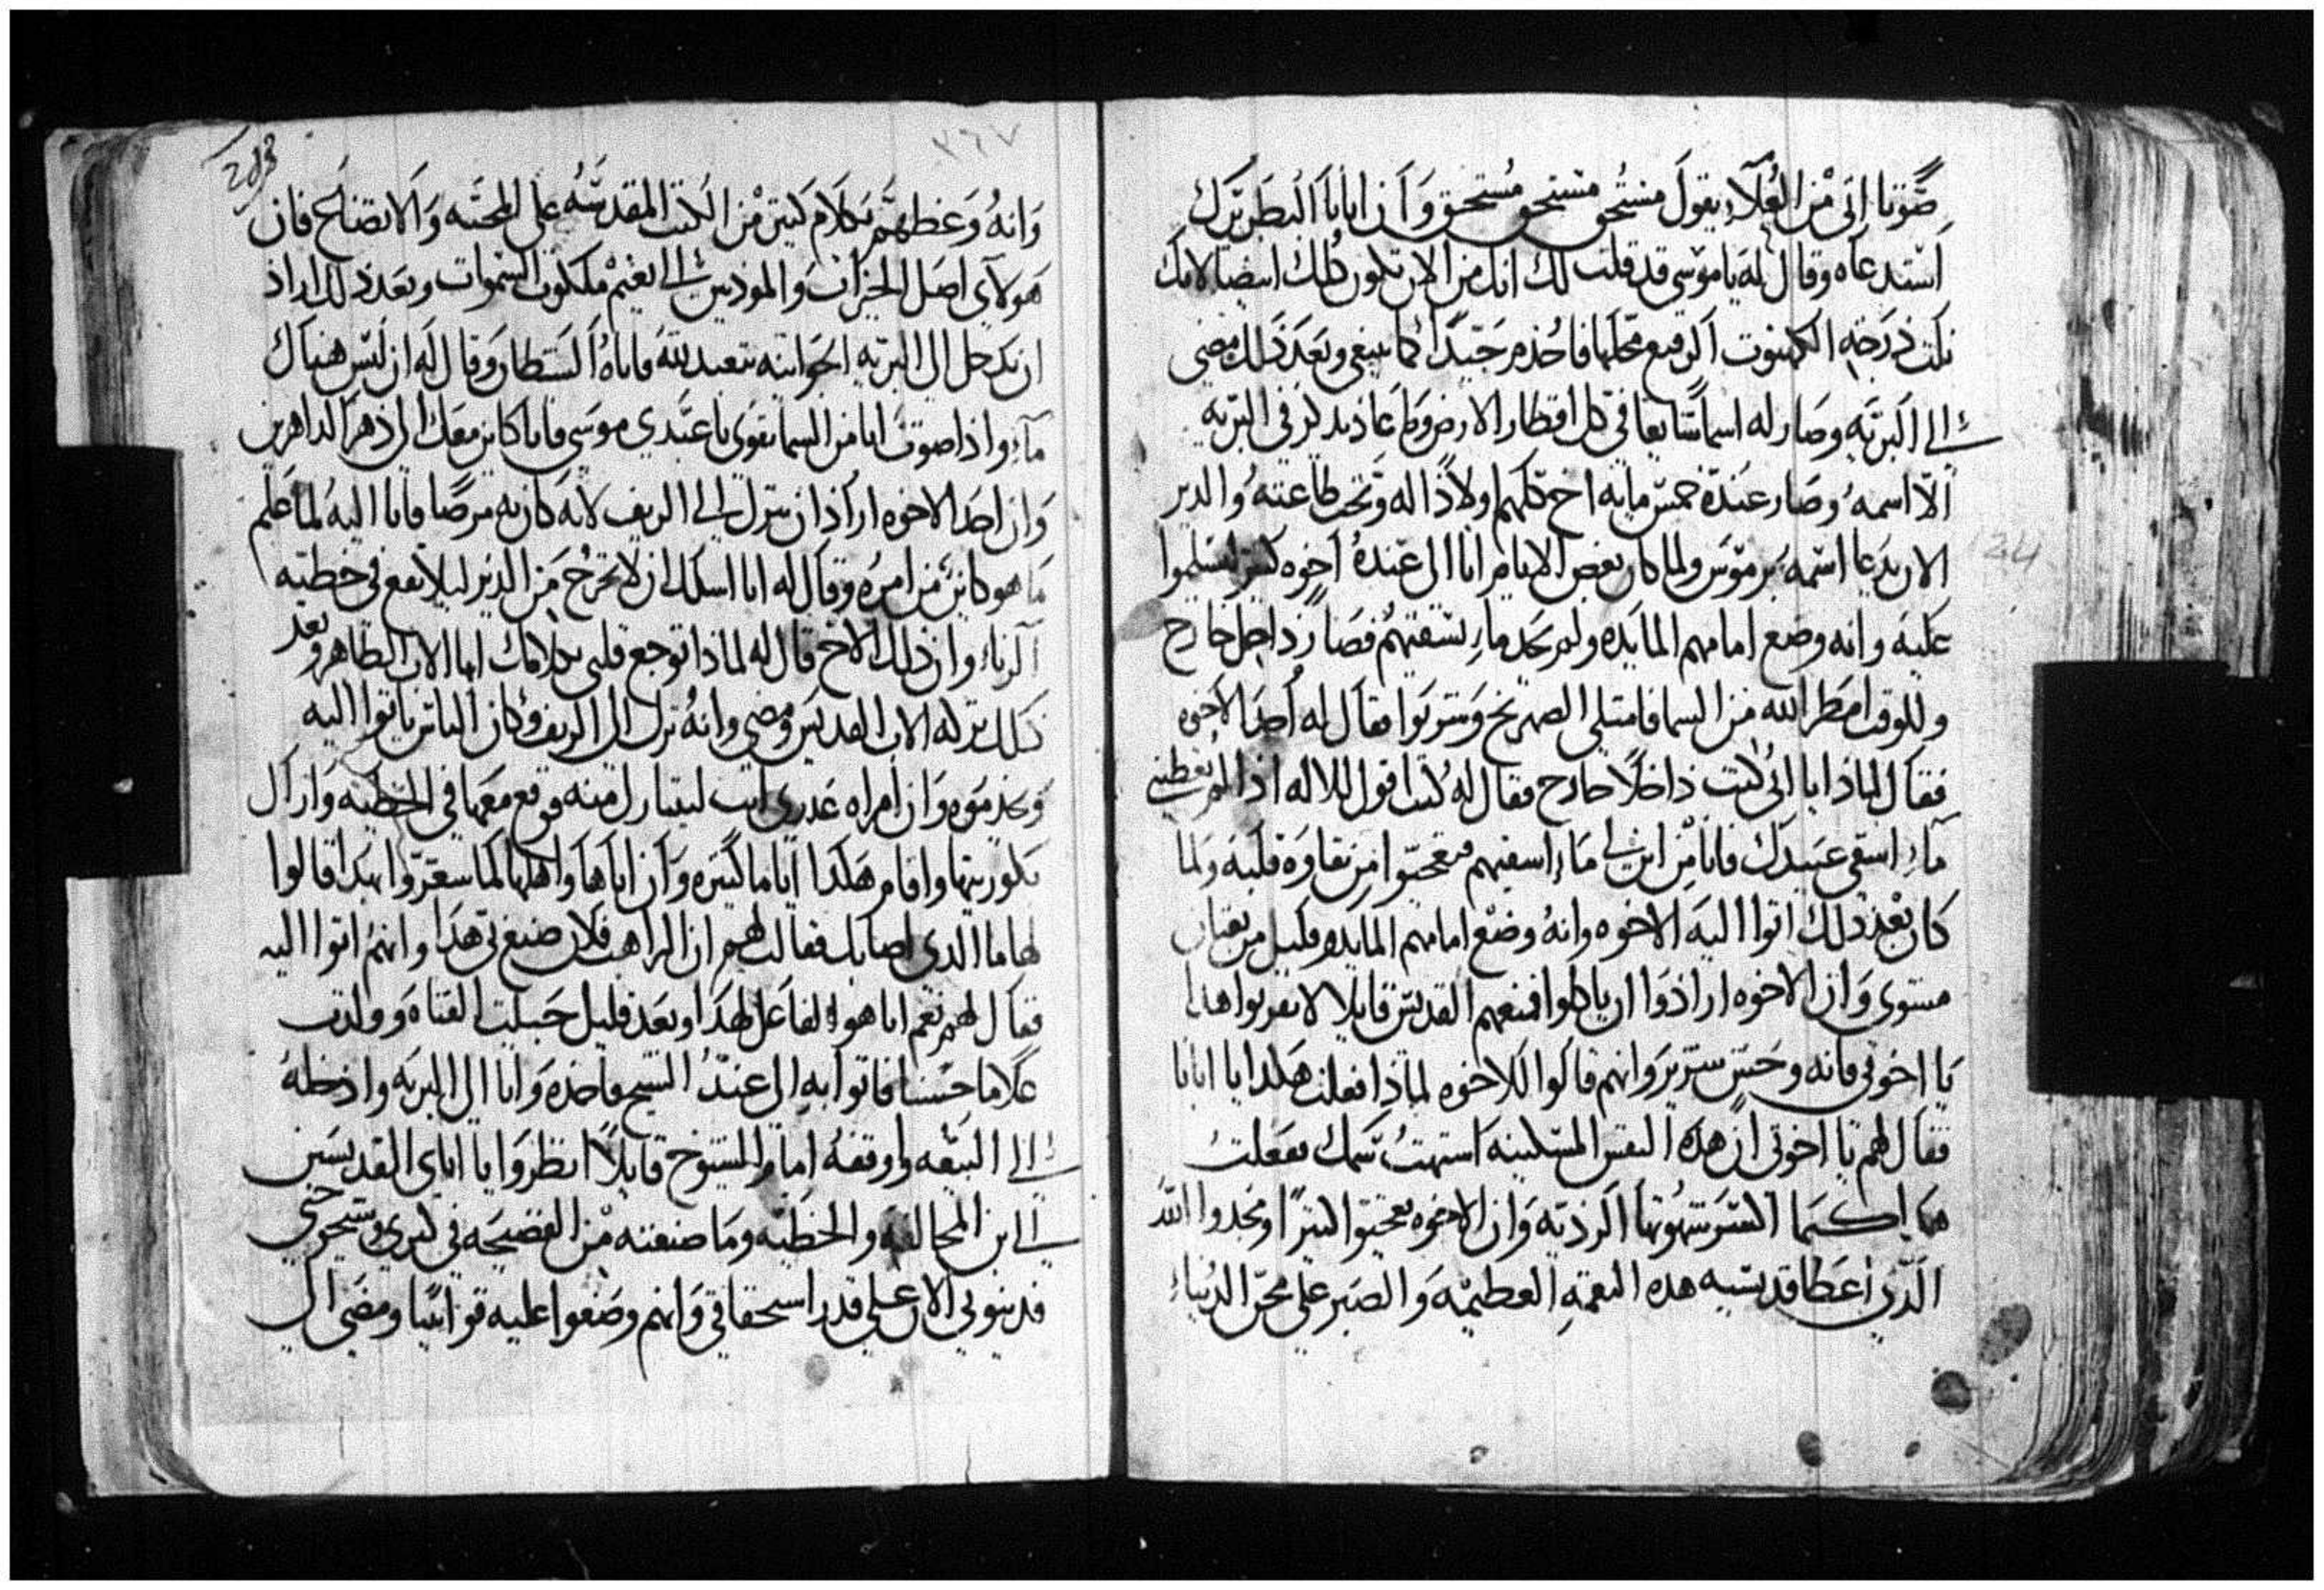 صوتا اتى من العُلاء يقول مستحق مستحق مستحق وان انبا البطريرك
استدعاه وقال له يا موسى قد قلت لك انك من الان تكون كلك ابيضا لانك
نلت درجة الكهنوت الرفيع محلها فاخدم جيدًا كما ينبغي وبعد ذلك مضى
الى البريه وصار له اسما شايعا في كل اقطار الارض وما عاد يذكر في البريه
الا اسمه وصار عنده خمس مايه اخ كلهم اولادًا له وتحت طاعته والدير
الان يدعا اسمه برموس ولما كان بعض الايام اتا الى عنده اخوه كثير ليسلموا
عليه وانه وضع امامهم المايده ولم يجد ماء ليسقيهم فصار داخل خارج
وللوقت امطر الله من السما فامتلى الصهريج وشربوا فقال له احد الاخوه
فقال لماذا يا ابي كنت داخلًا خارج فقال له كنت اقول للاله اذا لم تعطيني
ماء اسقي عبيدك فانا من اين لي ماء اسقيهم فتعجبوا من نقاوة قلبه ولما
كان بعد ذلك اتوا اليه الاخوه وانه وضع امامهم المايده وقليل من
مستوى وان الاخوه ارادوا ان ياكلوا فمنعهم القديس قايلا لا تقربوا هذا
يا اخوتي فانه وحش شرير وانهم قالوا الاخوه لماذا فعلت هكذا يا ابانا
فقال لهم يا اخوتي ان هذه النفس المسكينه اشتهت سمك ففعلت
هكذا كيما اكسر شهوتها الرديه وان الاخوه تعجبوا كثيرًا ومجدوا الله
الذي اعطا قديسيه هذه النعمة العظيمه والصبر على محن الدنياء
٣٦٧
203
وانه وعظهم بكلام كثير من الكتب المقدسه على المحبه والاتضاع فان
هولاي اصل الخيرات والموديين الى نعيم ملكوت السموات وبعد ذلك اراد
ان يدخل الى البريه الجوانيه يتعبد لله فاتاه الشيطان وقال له ان ليس هناك
ماء واذا صوت اتا من السما تقوى يا عبدي موسى فانا كاين معك الى دهر الداهرين
وان احد الاخوه اراد ان ينزل الى الريف لانه كان به مرضا فاتا اليه لما علم
ما هو كاين من امره وقال له انا اسلك ان لا تخرج من الدير ليلا تقع في خطية
الزناء وان ذلك الاخ قال له لماذا توجع قلبي بكلامك ايها الاب الطاهر وبعد
ذلك تركه الاب القديس ومضى وانه نزل الى الريف وكان الناس ياتوا اليه
ويخدموه وان امراه عدرى اتت ليتبارك منه فوقع معها في الخطيه وازال
بكوريتها واقام هكذا اياما كثيره وان اباها واهلها لما شعروا بهدا قالوا
لها ما الدي اصابك فقالت لهم ان الراهب فلان صنع بي هدا وانهم اتوا اليه
فقال لهم نعم انا هو الفاعل لهدا وبعد قليل حبلت الفتاه وولدت
غلاما حسنا فاتوا به الى عند الشيخ فاخده واتا الى البريه وادخله
الى البيعه واوقفه امام الشيوخ قايلًا انظروا يا اباى القديسين
الى ابن المخالفه والخطيه وما صنعته من الفضيحه في كبري وشيخوختي
فدينوني الان على قدر استحقاقي وانهم وضعوا عليه قوانينا ومضى الى